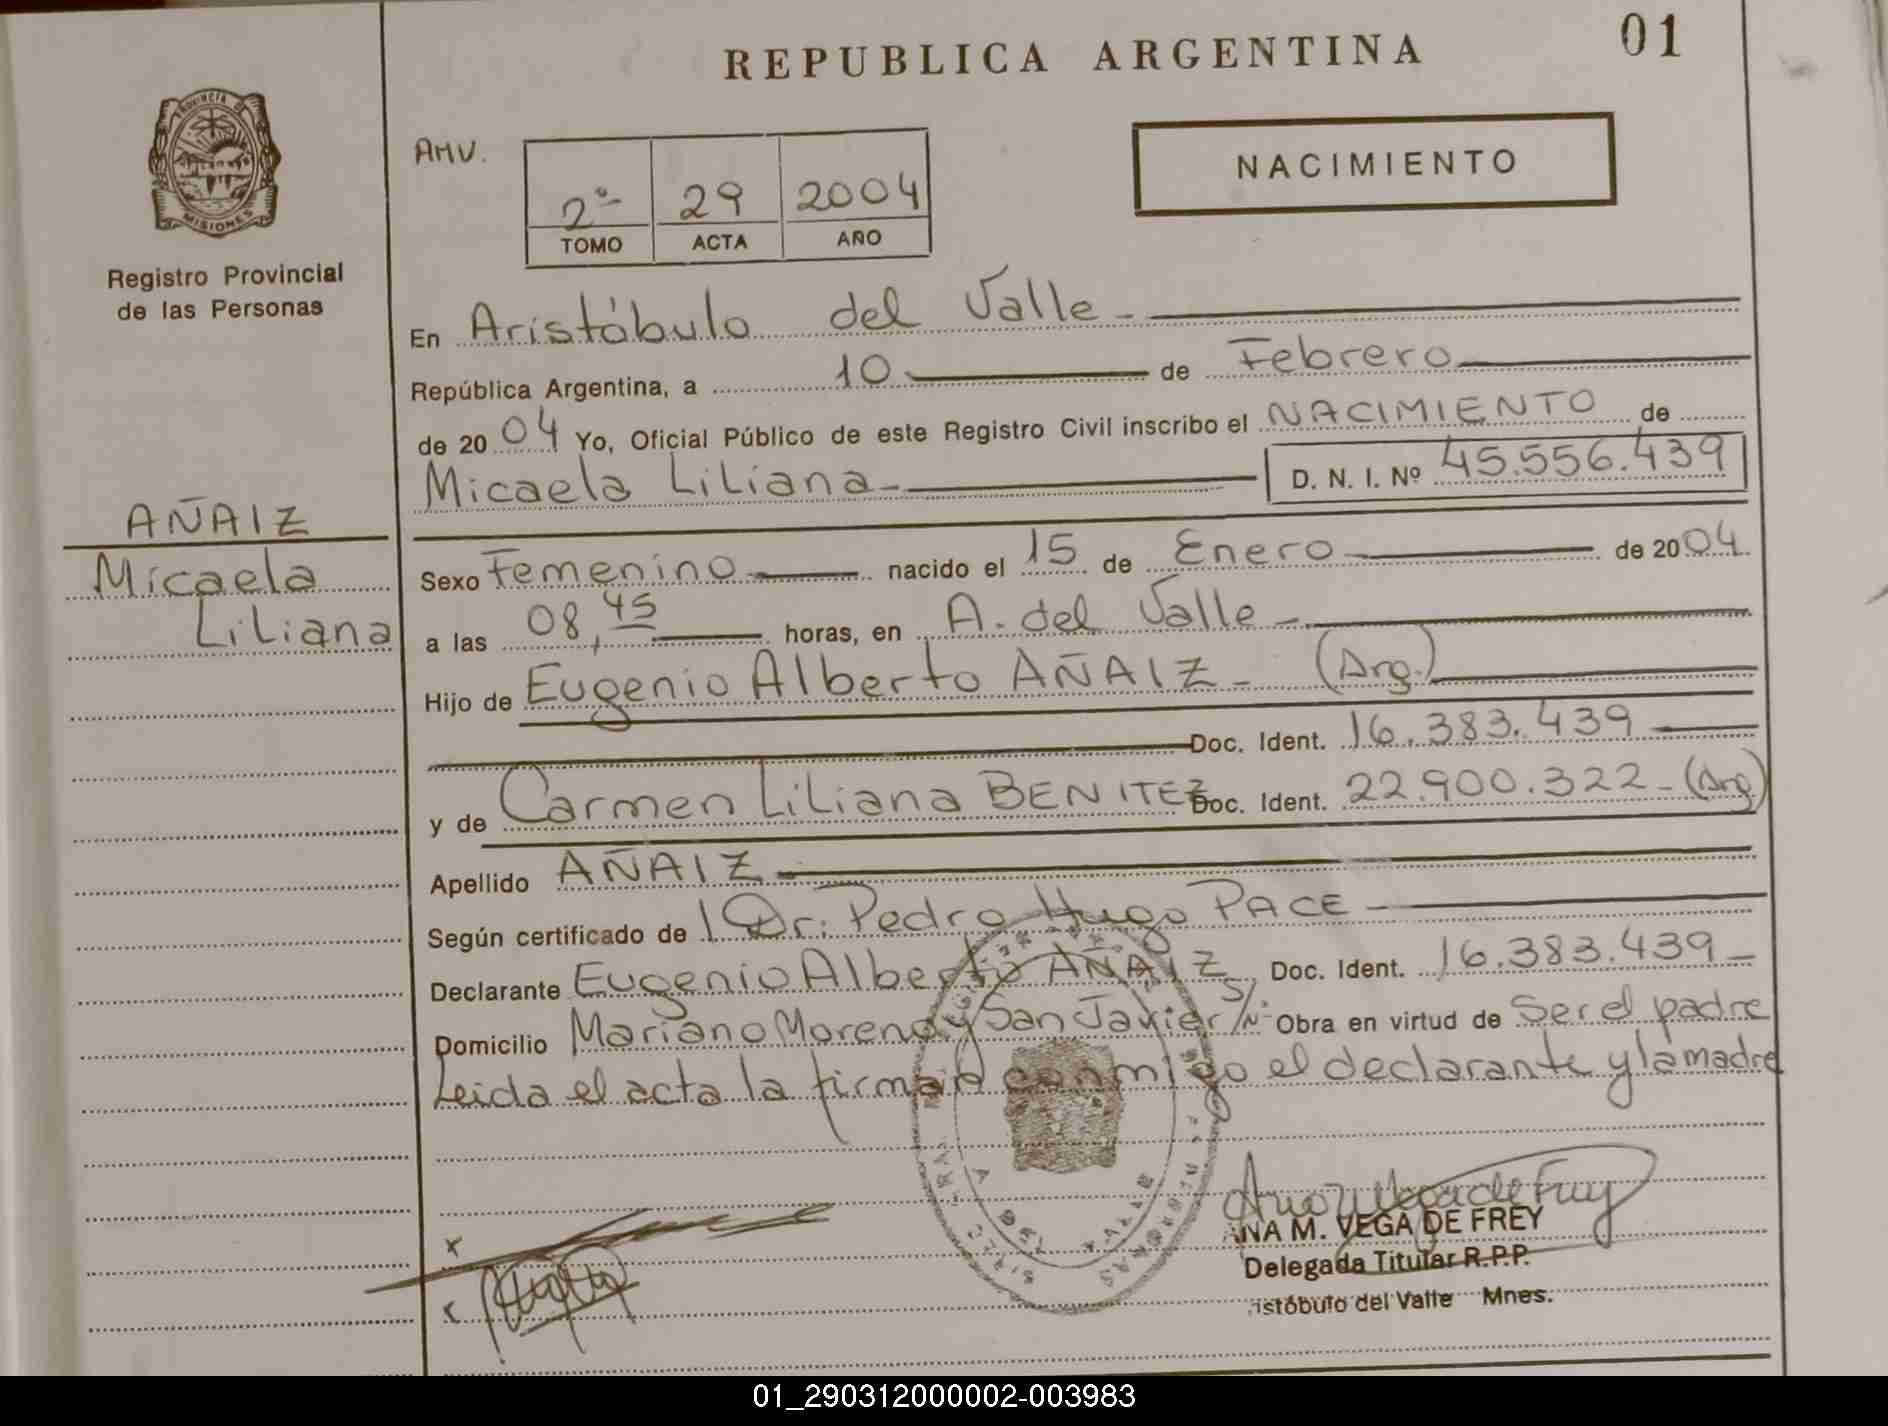 REPUBLICA ARGENTINA
01
PROVINCIA DE
MISIONES
Registro Provincial
de las Personas
AÑAIZ
Micaela
Liliana
AMV.
2º 29 2004
TOMO ACTA AÑO
NACIMIENTO
En Aristóbulo del Valle -
República Argentina, a 10 de Febrero
de 20 04 Yo, Oficial Público de este Registro Civil inscribo el NACIMIENTO de
Micaela Liliana - D. N. I. Nº 45.556.439
Sexo Femenino nacido el 15 de Enero de 20 04.
a las 08,45 horas, en A. del Valle -
Hijo de Eugenio Alberto AÑAIZ - (Arg.)
Doc. Ident. 16.383.439
y de Carmen Liliana BENITEZ Doc. Ident. 22.900.322 - (Arg)
Apellido AÑAIZ
Según certificado de Dr. Pedro Hugo PACE
Declarante Eugenio Alberto AÑAIZ Doc. Ident. 16.383.439 -
Domicilio Mariano Moreno y San Javier S/N- Obra en virtud de Ser el padre
Leida el acta la firman conmigo el declarante y la madre
ANA M. VEGA DE FREY
Delegada Titular R.P.P.
istóbulo del Valle Mnes.
01_290312000002-003983